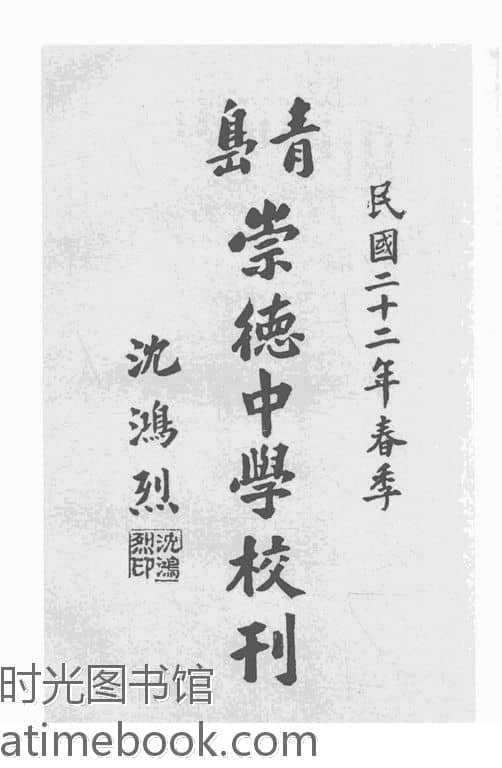 民國二十二年春季
青島
崇德中學校刊
沈鴻烈
沈鴻烈印
时光图书馆
atimebook.com